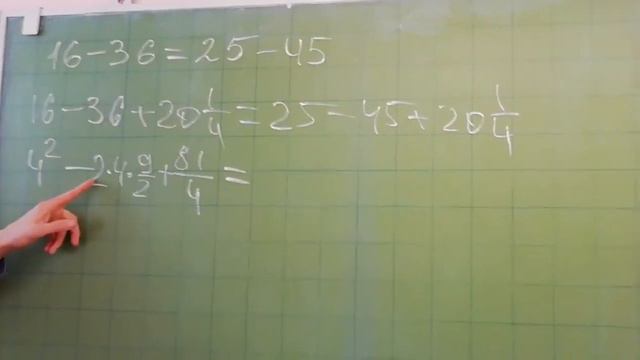 16-36=25-45
16-36+20 1/4=25-45+20 1/4
4²-2·4·9/2+81/4=